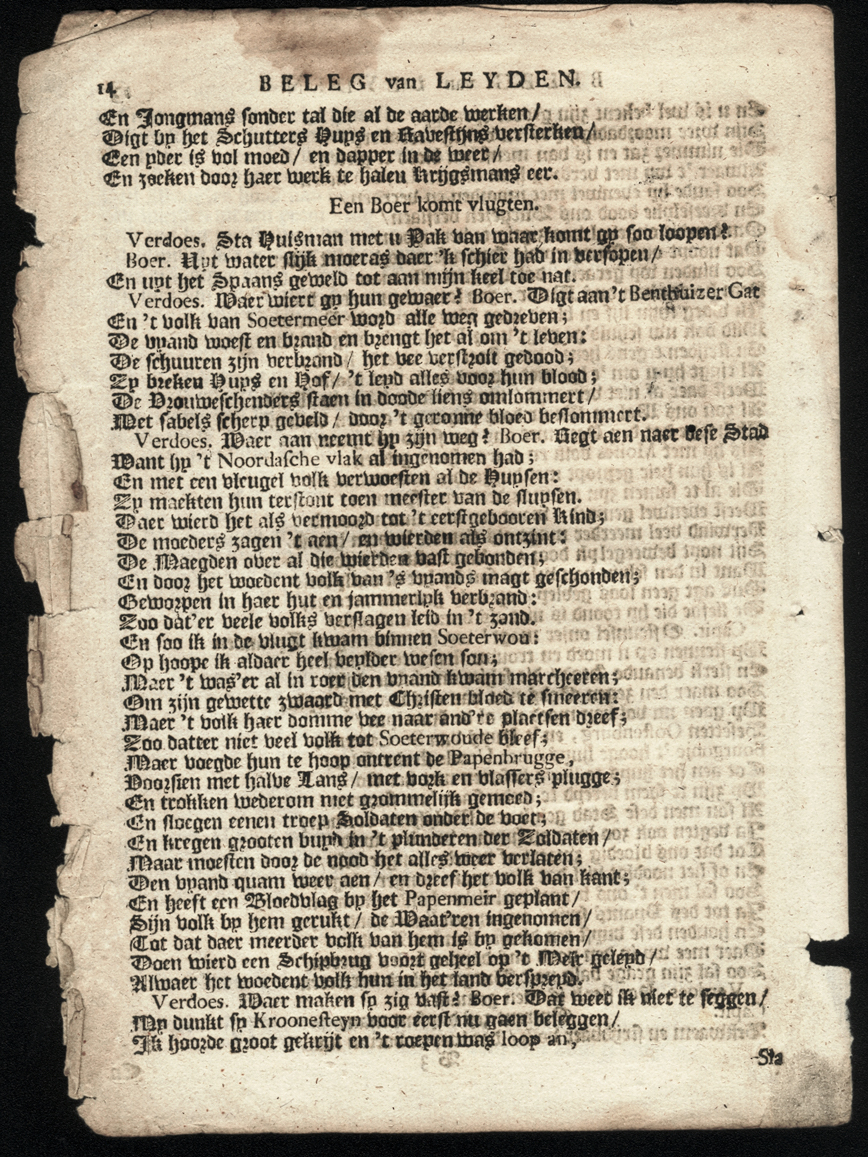 14 BELEG van LEYDEN.
En Jongmans sonder tal die al de aarde werken/
Digt by het Schutters Huys en Ravestijns versterken/
Een yder is vol moed/ en dapper in de weer/
En zoeken door haer werk te halen Krijgsmans eer.
Een Boer komt vlugten.
Verdoes. Sta Huisman met u Pak van waar komt gy soo loopen?
Boer. Uyt water slijk moeras daer 'k schier had in versopen/
En uyt het Spaans geweld tot aan mijn keel toe nat.
Verdoes. Waer wiert gy hun gewaer? Boer. Digt aan 't Benthuizer Gat
En 't volk van Soetermeer word alle weg gedreven;
De vyand woest en brand en brengt het al om 't leven:
De schuuren zijn verbrand/ het vee verstroit gedood;
Zy breken Huys en Hof/ 't leyd alles voor hun blood;
De Vrouweschenders staen in doode liens omlommert/
Met sabels scherp geveld/ door 't geronne bloed beslommert.
Verdoes. Waer aan neemt hy zijn weg? Boer. Regt aen naer dese Stad
Want hy 't Noordasche vlak al ingenomen had;
En met een vleugel volk verwoesten al de Huysen:
Zy maekten hun terstont toen meester van de sluysen.
Daer wierd het als vermoord tot 't eerstgebooren Kind;
De moeders zagen 't aen/ en wierden als ontzint:
De Maegden over al die wierden vast gebonden;
En door het woedent volk van 's vyands magt geschonden;
Geworpen in haer hut en jammerlyk verbrand:
Zoo dat'er veele volks verslagen leid in 't zand.
En soo ik in de vlugt kwam binnen Soeterwou:
Op hoope ik aldaer heel veylder wesen sou;
Maer 't was'er al in roer den vyand kwam marcheeren;
Om zijn gewette zwaard met Christen bloed te smeeren:
Maer 't volk haer domme vee naar and're plaetsen dreef;
Zoo datter niet veel volk tot Soeterwoude bleef;
Maer voegde hun te hoop ontrent de Papenbrugge,
Voorsien met halve Lans/ met vork en vlassers plugge;
En trokken wederom met grommelijk gemoed;
En sloegen eenen troep Soldaten onder de voet;
En kregen grooten buyd in 't plunderen der Zoldaten/
Maar moesten door de nood het alles weer verlaten;
Den vyand quam weer aen/ en dreef het volk van kant;
En heeft een Bloedvlag by het Papenmeir geplant/
Sijn volk by hem gerukt/ de Waat'ren ingenomen/
Tot dat daer meerder volk van hem is by gekomen/
Doen wierd een Schipbrug voort geheel op 't Meir geleyd/
Alwaer het woedent volk hun in het land verspreyd.
Verdoes. Waer maken sy zig vast? Boer. Dat weet ik niet te seggen/
My dunkt sy Kroonesteyn voor eerst nu gaen beleggen/
Ik hoorde groot gekrijt en 't roepen was loop an,
Sta